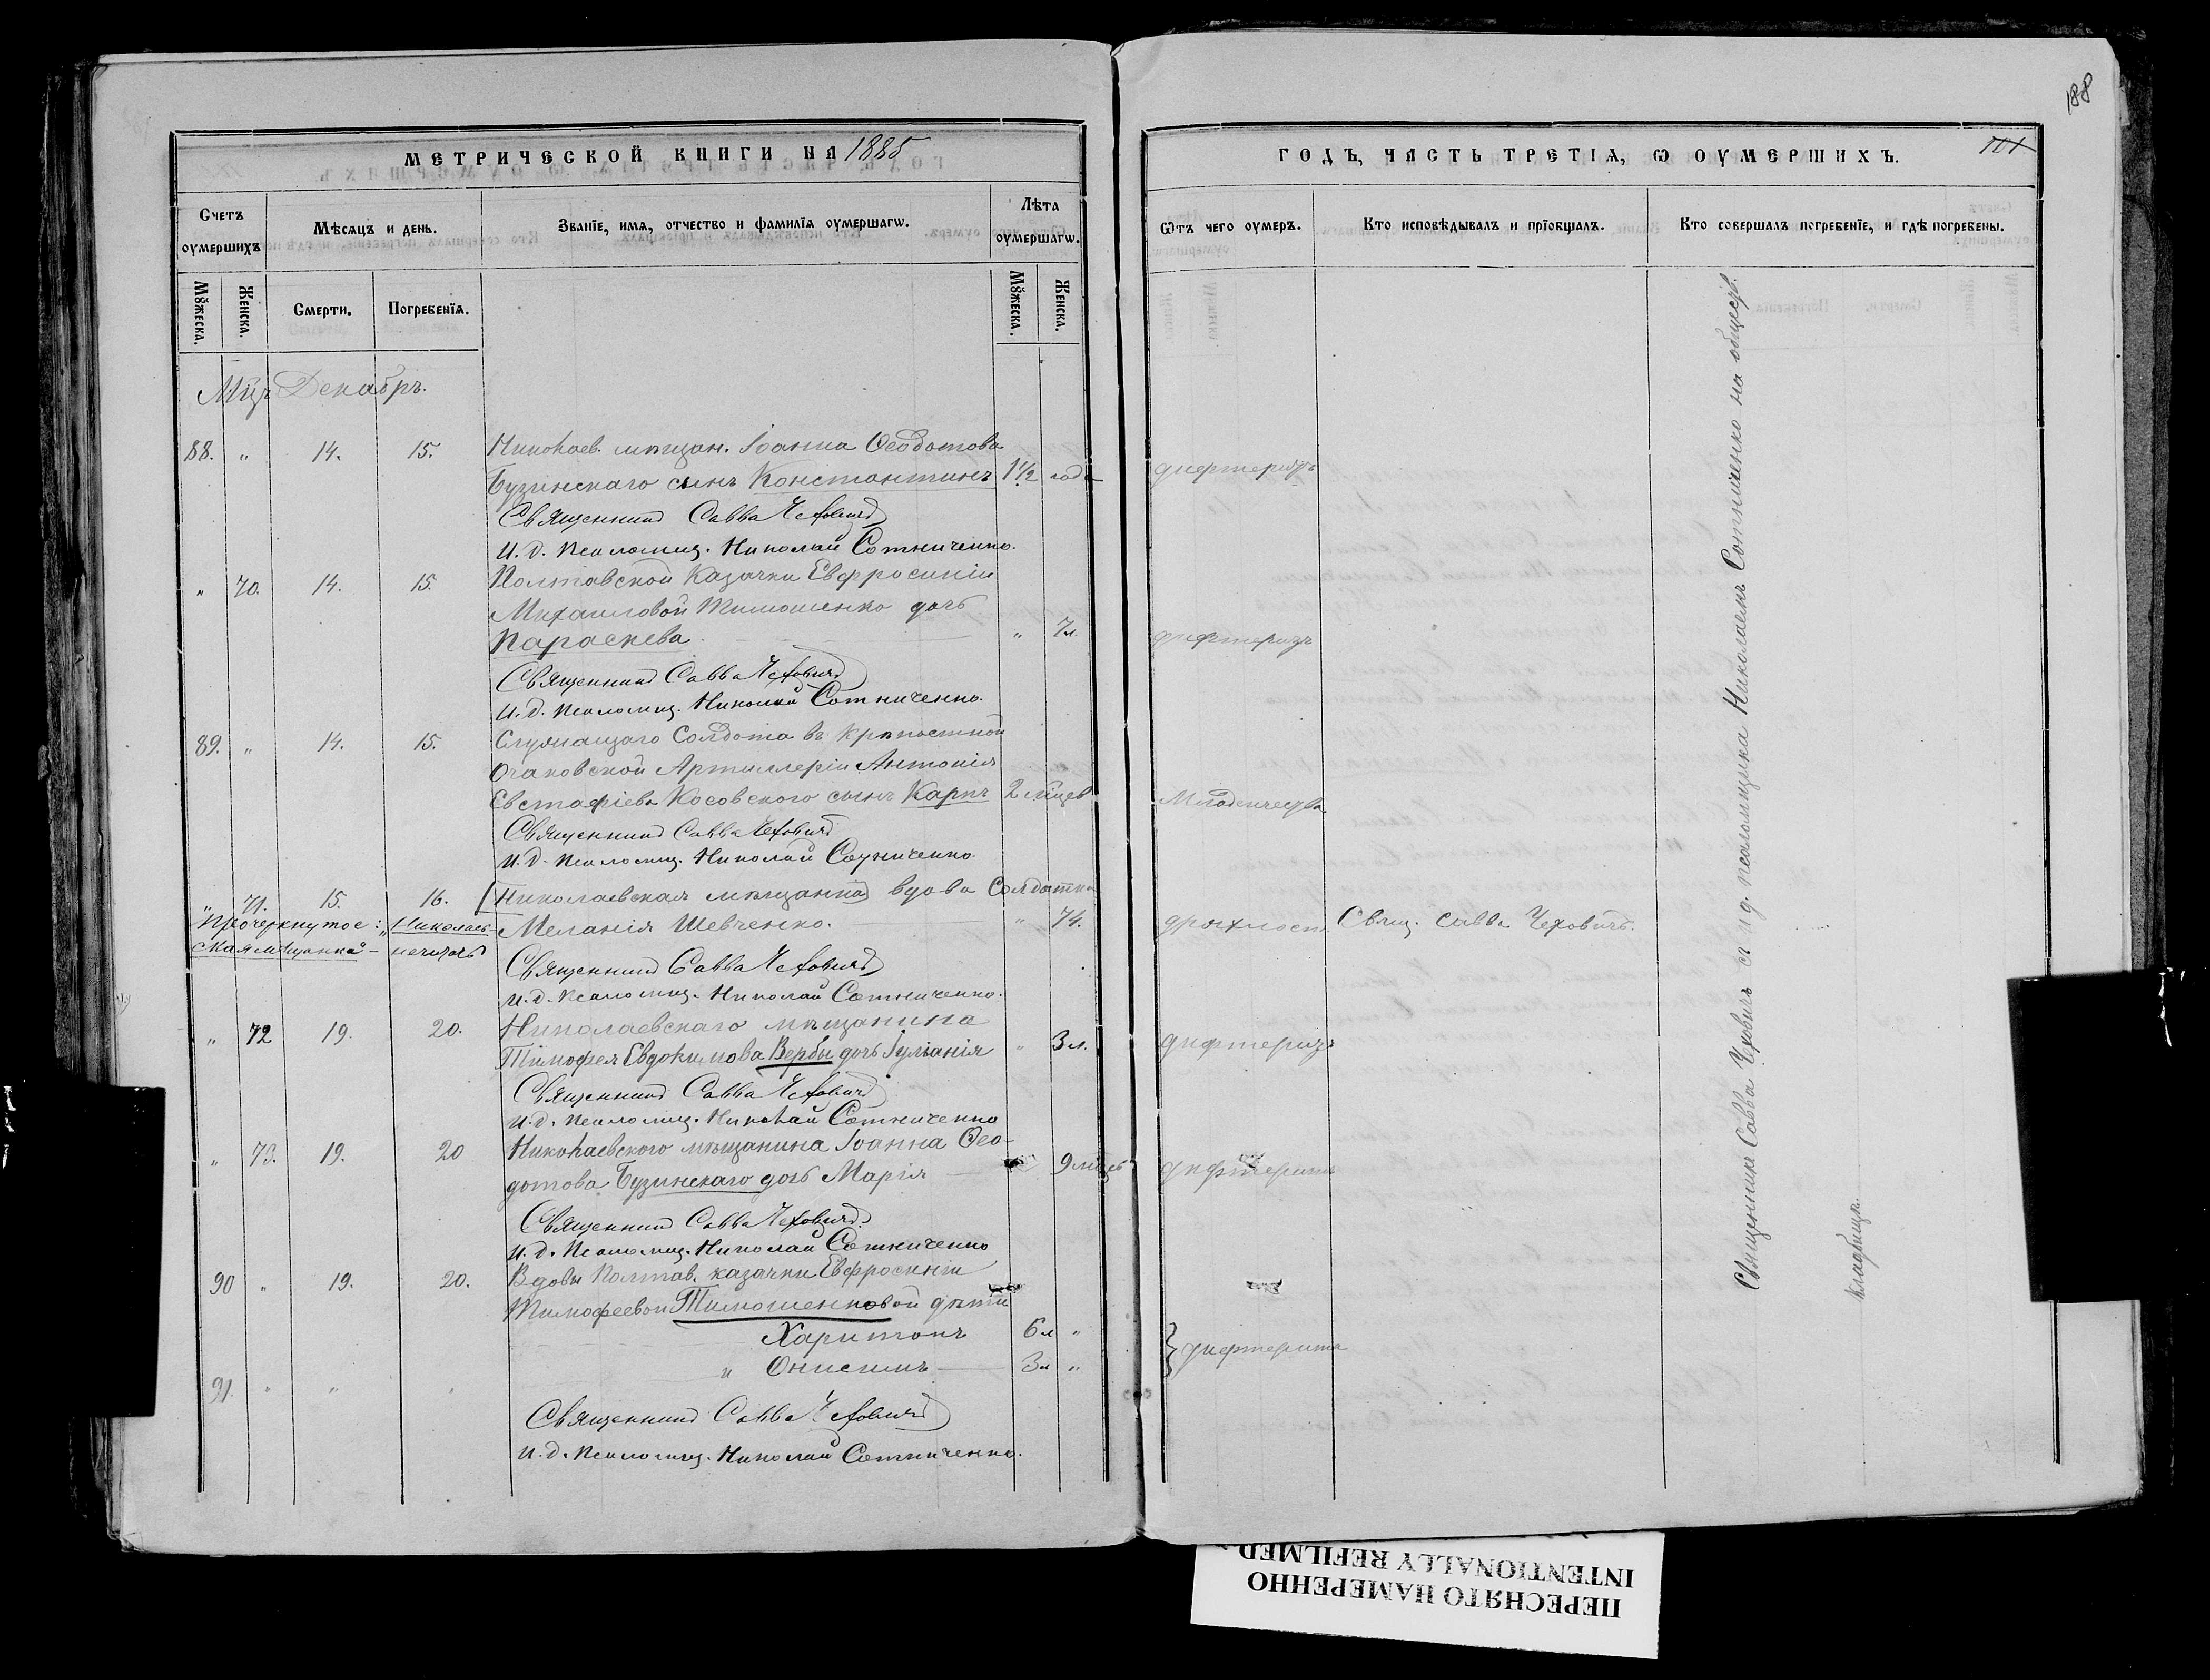 188
МЕТРИЧЕСКОЙ КНИГИ НА 1885
ГОДЪ, ЧАСТЬ ТРЕТІѦ, Ѡ ОУМЕРШИХЪ.
101
Счетъ оумершихъ
Мѣсяцъ и день.
Званіе, имя, отчество и фамилія оумершагѡ.
Лѣта оумершагѡ.
Ѿтъ чего оумеръ.
Кто исповѣдывалъ и пріобщалъ.
Кто совершалъ погребеніе, и гдѣ погребены.
Мꙋжеска.
Женска.
Смерти.
Погребенїя.
Мꙋжеска.
Женска.
Мц҃ъ Декабрь.
88. " 14. 15. Николаев. мѣщан. Іоанна Ѳеодотова
Бузинскаго сынъ Константинъ 1½ года дифтеризъ
Священникъ Савва Чеховичъ
И. д. псаломщ. Николай Сотниченко.
" 70. 14. 15. Полтавской Казачки Евфросиніи
Михаиловой Тимошенко дочь
Параскева " 7 л. дифтеризъ
Священникъ Савва Чеховичъ
И. д. псаломщ. Николай Сотниченко.
89. " 14. 15. Служащаго Солдата въ крѣпостной
Очаковской Артиллеріи Антонія
Евстафіева Косовскаго сынъ Карпъ 2 мц҃ев Младенчества
Священникъ Савва Чеховичъ
И. д. псаломщ. Николай Сотниченко
" 71. 15. 16. Николаевская мѣщанка вдова Солдатка
Прочеркнутое: „Николаев-
ская мѣщанка" – нечитать
Меланія Шевченко. " 74. дряхлост. Свящ. Савва Чеховичъ.
Священникъ Савва Чеховичъ
И. д. псаломщ. Николай Сотниченко.
" 72 19. 20. Николаевскаго мѣщанина
Тимофея Евдокимова Вербы дочь Іуліанія " 3 л. дифтеризъ
Священникъ Савва Чеховичъ
И. д. псаломщ. Николай Сотниченко
" 73. 19. 20 Николаевского мѣщанина Іоанна Ѳео-
дотова Бузинскаго дочь Марія 9 мц҃ев дифтерита
Священникъ Савва Чеховичъ
И. д. Псаломщ. Николай Сотниченко
90 " 19. 20. Вдовы Полтав. казачки Евфросиніи
Тимофеевой Тимошенковой дѣти
Харитонъ 6 л "
" Онисимъ 3 л "
} дифтерита
91. " " "
Священникъ Савва Чеховичъ
И. д. Псаломщ. Николай Сотниченко.
Священникъ Савва Чеховичъ съ и д. псаломщика Николаемъ Сотниченко на общеcв.
кладбищѣ.
ПЕРЕСНЯТО НАМЕРЕННО
INTENTIONALLY REFILMED